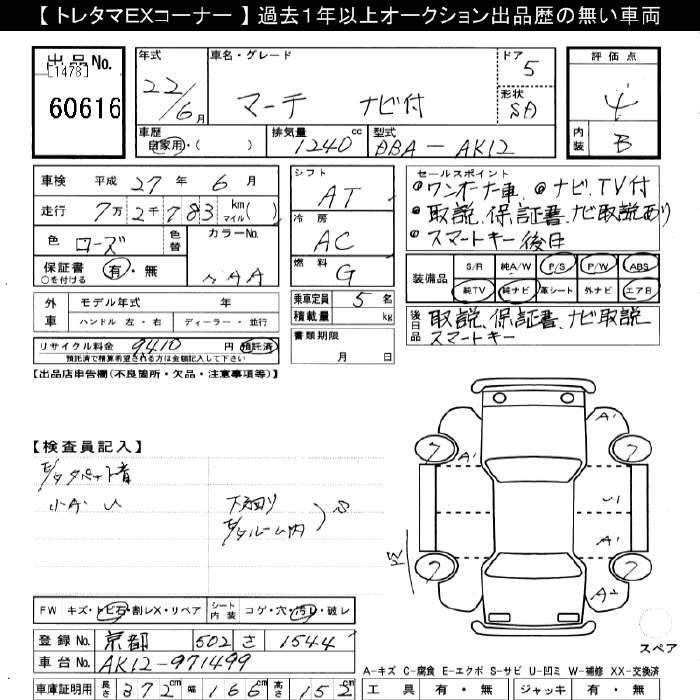 【 トレタマEXコーナー 】過去1年以上オークション出品歴の無い車両
出品No. [1478] 60616
年式 22/6月
車名・グレード マーチ ナビ付
ドア 5
形状
評価点 4
内装 B
車歴 自家用・( )
排気量 1240cc
型式 DBA-AK12
車検 平成 27年 6月
走行 7万2千783 km マイル( )
色 ローズ
色替
カラーNo. NAA
保証書 有・無
○を付ける
外車 モデル年式 年
ハンドル 左・右 ディーラー・並行
リサイクル料金 9410円 預託済
預託済で精算希望される方は金額記入して下さい
シフト AT
冷房 AC
燃料 G
乗車定員 5名
積載量 kg
書類期限
月 日
セールスポイント
ワンオーナー車、ナビ、TV付
取説、保証書、ナビ取説あり
スマートキー後日
装備品 S/R 純A/W P/S P/W ABS
純TV 純ナビ 革シート 外ナビ エアB
後日品 取説、保証書、ナビ取説
スマートキー
【出品店申告欄(不良箇所・欠品・注意事項等)】
【検査員記入】
小A、U
下回り
S
A'
A'
U'
A'
A2
7
7
7
7
スペア
FW キズ・トビ石・割レX・リペア
シート内装 コゲ・穴・汚レ・破レ
登録No. 京都 502 さ 1544
車台No. AK12-971499
車庫証明用 長さ 372cm 幅 166cm 高さ 152cm
A-キズ C-腐食 E-エクボ S-サビ U-凹ミ W-補修 XX-交換済
工具 有・無 ジャッキ 有 無